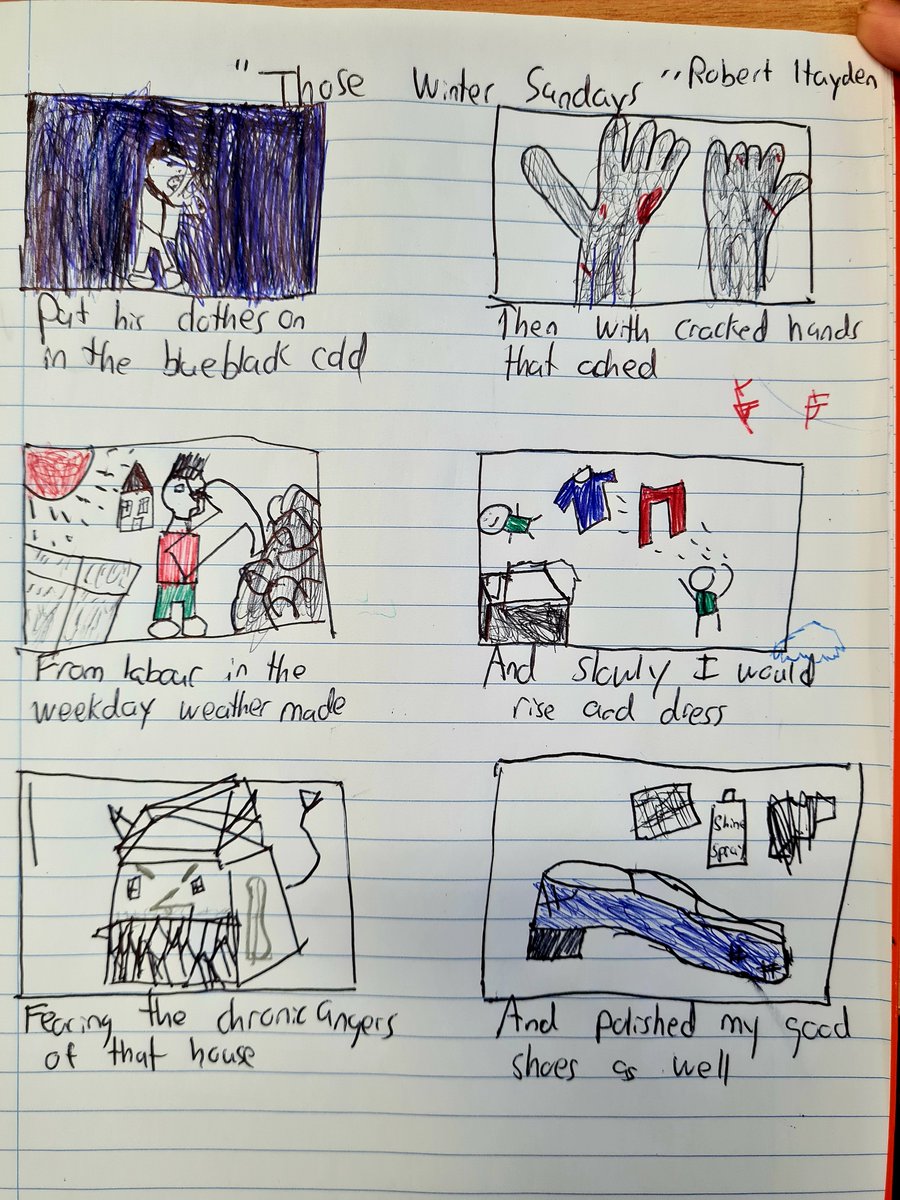 "Those Winter Sundays" Robert Hayden
Put his clothes on
in the blueblack cold
Then with cracked hands
that ached
From labour in the
weekday weather made
And slowly I would
rise and dress
Shine
Spray
Fearing the chronic angers
of that house
And polished my good
shoes as well